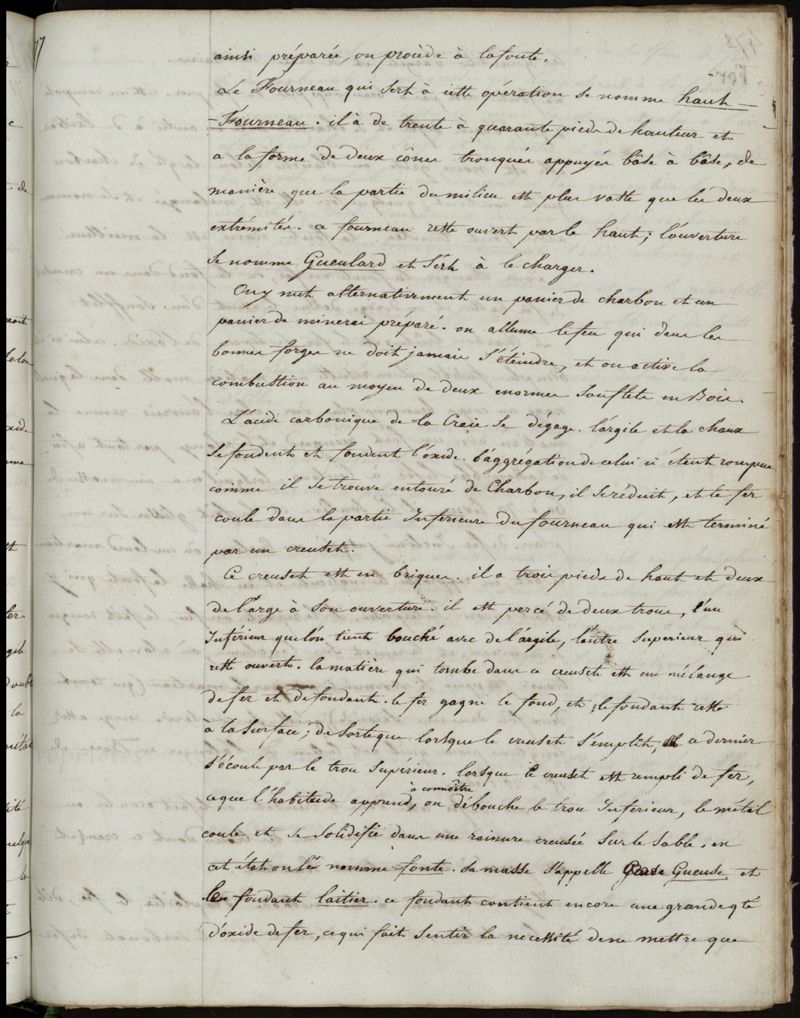 ainsi préparée, on procède à la fonte.
Le Fourneau qui sert à cette opération se nomme haut
-Fourneau. il à de trente à quarante pieds de hauteur et
a la forme de deux cônes tronqués appuyés bâse à bâse, de
manière que la partie du milieu est plus vaste que les deux
extrémités. ce fourneau reste ouvert par le haut; l'ouverture
se nomme Gueulard et sert à le charger.
On y met alternativement un panier de charbon et un
panier de minerai préparé. on allume le feu qui dans les
bonnes forges ne doit jamais s'éteindre, et on active la
combustion au moyen de deux enormes souflets en Bois.
L'acide carbonique de la Craie se dégage. l'argile et la chaux
se fondent et fondent l'oxide. l'aggrégation de celui ci étant rompue
comme il se trouve entouré de Charbon, il se réduit, et le fer
coule dans la partie Inferieure du fourneau qui est terminé
par un creuset.
Ce creuset est en briques. il a trois pieds de haut et deux
de l'arge à son ouverture. il est percé de deux trous, l'un
Inférieur que l'on tient bouché avec de l'argile, l'autre superieur qui
reste ouvert. la matière qui tombe dans ce creuset est un mélange
de fer et de fondant. le fer gagne le fond, et le fondant reste
à la surface; de sorte que lorsque le creuset s'emplit, ce dernier
s'écoule par le trou supérieur. lorsque le creuset est rempli de fer,
à connoître
ce que l'habitude apprend, on débouche le trou Inferieur, le métal
coule et se solidifie dans une rainure creusée sur le sable. en
cet état on le nomme fonte. sa masse s'appelle Gueuse et
le fondant laitier. ce fondant contient encore une grande qté
d'oxide de fer, ce qui fait sentir la necessité de ne mettre que